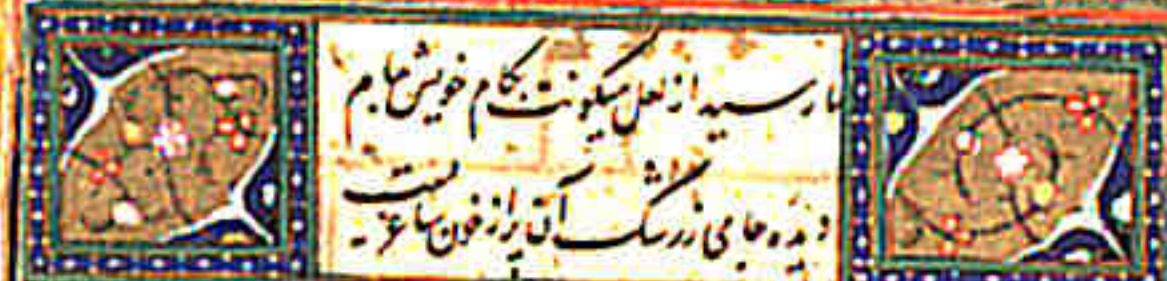 تا رسید از لعل میگونت بکام خویش جام
دیده جامی ز رشک آن پر از خون ساغریست